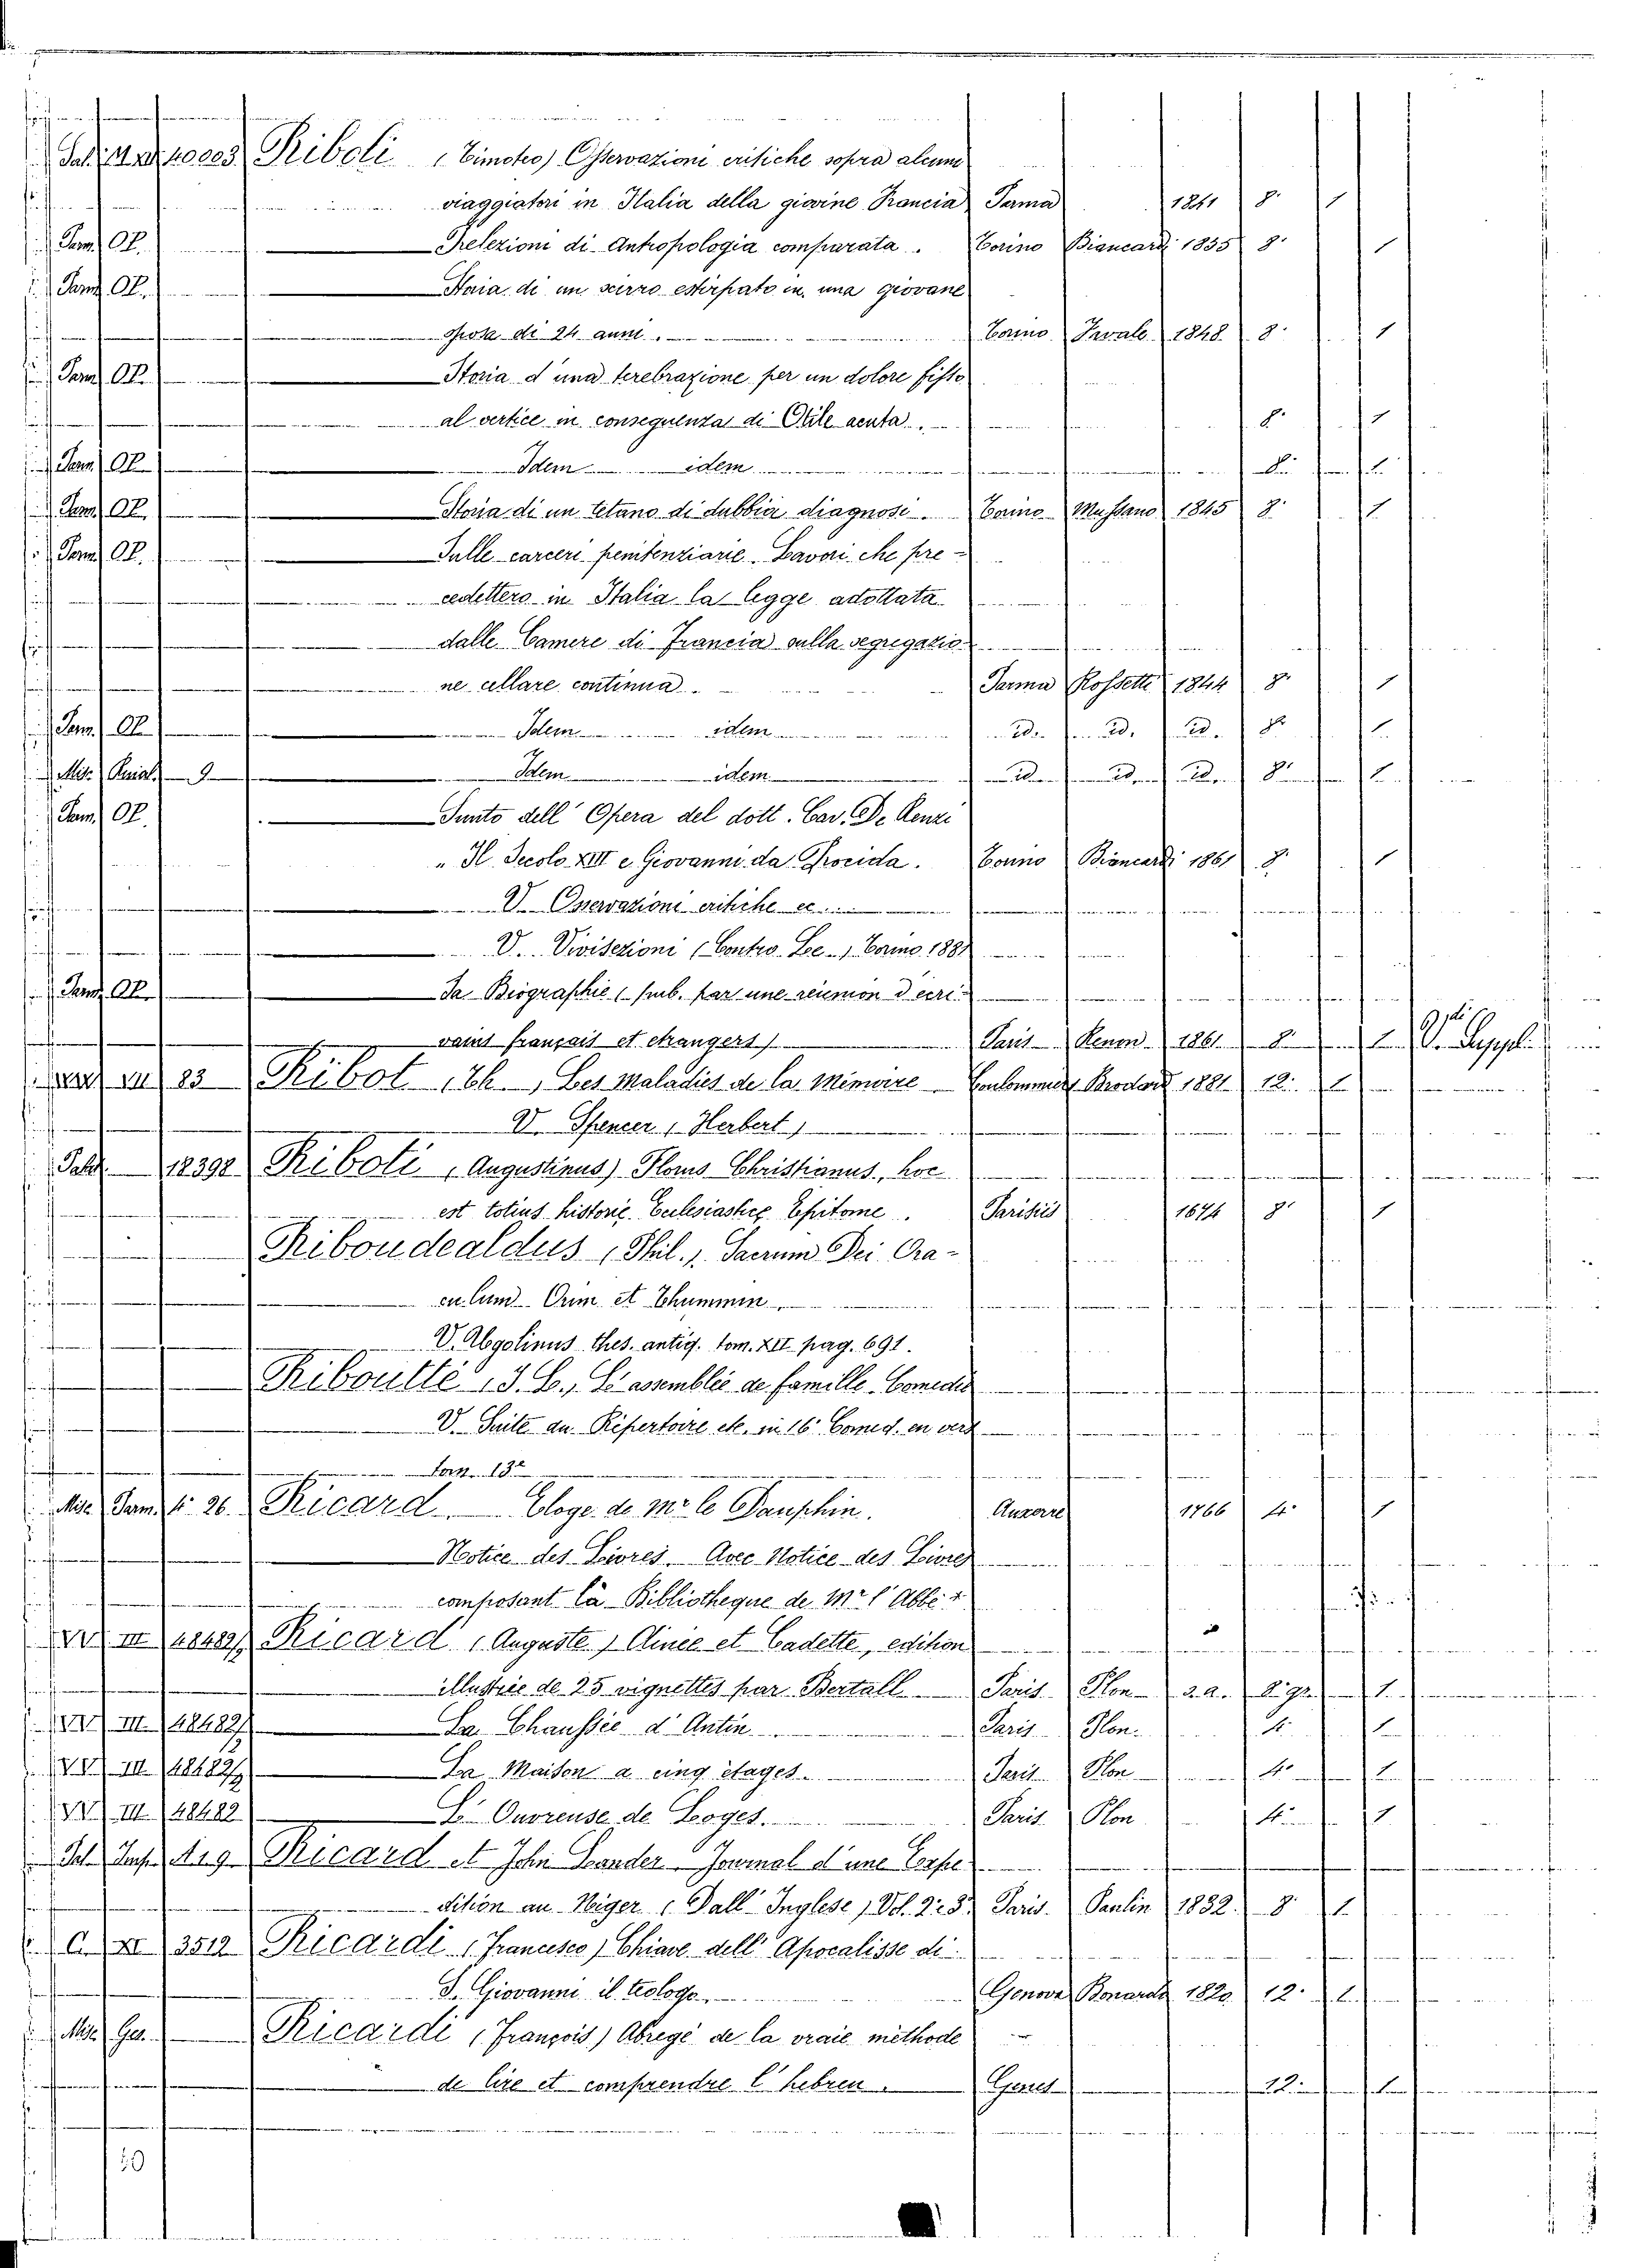 Riboli (Timoteo) Osservazioni critiche sopra alcuni
viaggiatori in Italia della giovine Francia Parma 1841 8° 1
Parm. OP. Prelezioni di Antropologia comparata. Torino Biancardi 1855 8° 1
Parm. OP. Storia di un scirro estirpato in una giovane
sposa di 24 anni. Torino Favale 1848 8° 1
Parm. OP. Storia d'una terebrazione per un dolore fisso
al vertice in conseguenza di Otite acuta. 8° 1
Parm. OP. Idem idem 8° 1
Parm. OP. Storia di un tetano di dubbia diagnosi. Torino Mussano 1845 8° 1
Parm. OP. Sulle carceri penitenziarie. Lavori che pre-
cedettero in Italia la legge adottata
dalle Camere di Francia sulla segregazio-
ne cellare continua. Parma Rossetti 1844 8° 1
Parm. OP. Idem idem id. id. id. 8° 1
Misc. 9 Idem idem id. id. id. 8° 1
Parm. OP. Sunto dell'Opera del dott. Cav. De Renzi
"Il Secolo XIII e Giovanni da Procida. Torino Biancardi 1861 8° 1
V. Osservazioni critiche ec.
V. Vivisezioni (Contro Lee) Torino 1881
Parm. OP. Sa Biographie (pub. par une réunion d'ecri-
vains français et etrangers) Paris Renon 1861 8° 1 V. Suppl.
VII 83 Ribot (Th.) Les Maladies de la Mémoire Coulommiers Brodard 1881 12° 1
V. Spencer (Herbert)
Palat. 12398 Riboti (Augustinus) Florus Christianus, hoc
est totius historię Ecclesiasticę Epitome. Parisiis 1674 8° 1
Riboudealdus (Phil.) Sacrum Dei Ora-
culum Urim et Thummin
V. Ugolinus thes. antiq. tom. XII pag. 691.
Riboutté (F. L.) L'assemblée de famille. Comedie
V. Suite du Répertoire etc. in 16° Comed. en vers
tom. 13°
Misc. Parm. 4° 26. Ricard. Eloge de Mr le Dauphin. Auxerre 1766 4° 1
Notice des Livres. Avec Notice des Livres
composant la Bibliotheque de Mr l'Abbé *
III 48489 Ricard (Auguste) Ainée et Cadette, edition
illustrée de 25 vignettes par Bertall Paris Plon s.a. 8° gr. 1
III 48482 La Chaussée d'Antin Paris Plon. 4° 1
III 48482 La Maison a cinq étages. Paris Plon 4° 1
III 48482 L'Ouvreuse de Loges. Paris Plon 4° 1
Ricard et John Lander Journal d'une Expe-
dition au Niger (Dall'Inglese) Vol. 2° 3° Paris. Paulin 1832. 8° 1
3512 Ricardi (Francesco) Chiave dell'Apocalisse di
S. Giovanni il teologo Genova Bonaudo 1820 12° 1
Misc. Ges. Ricardi (François) Abregé de la vraie méthode
de lire et comprendre l'hebreu. Genes 12° 1